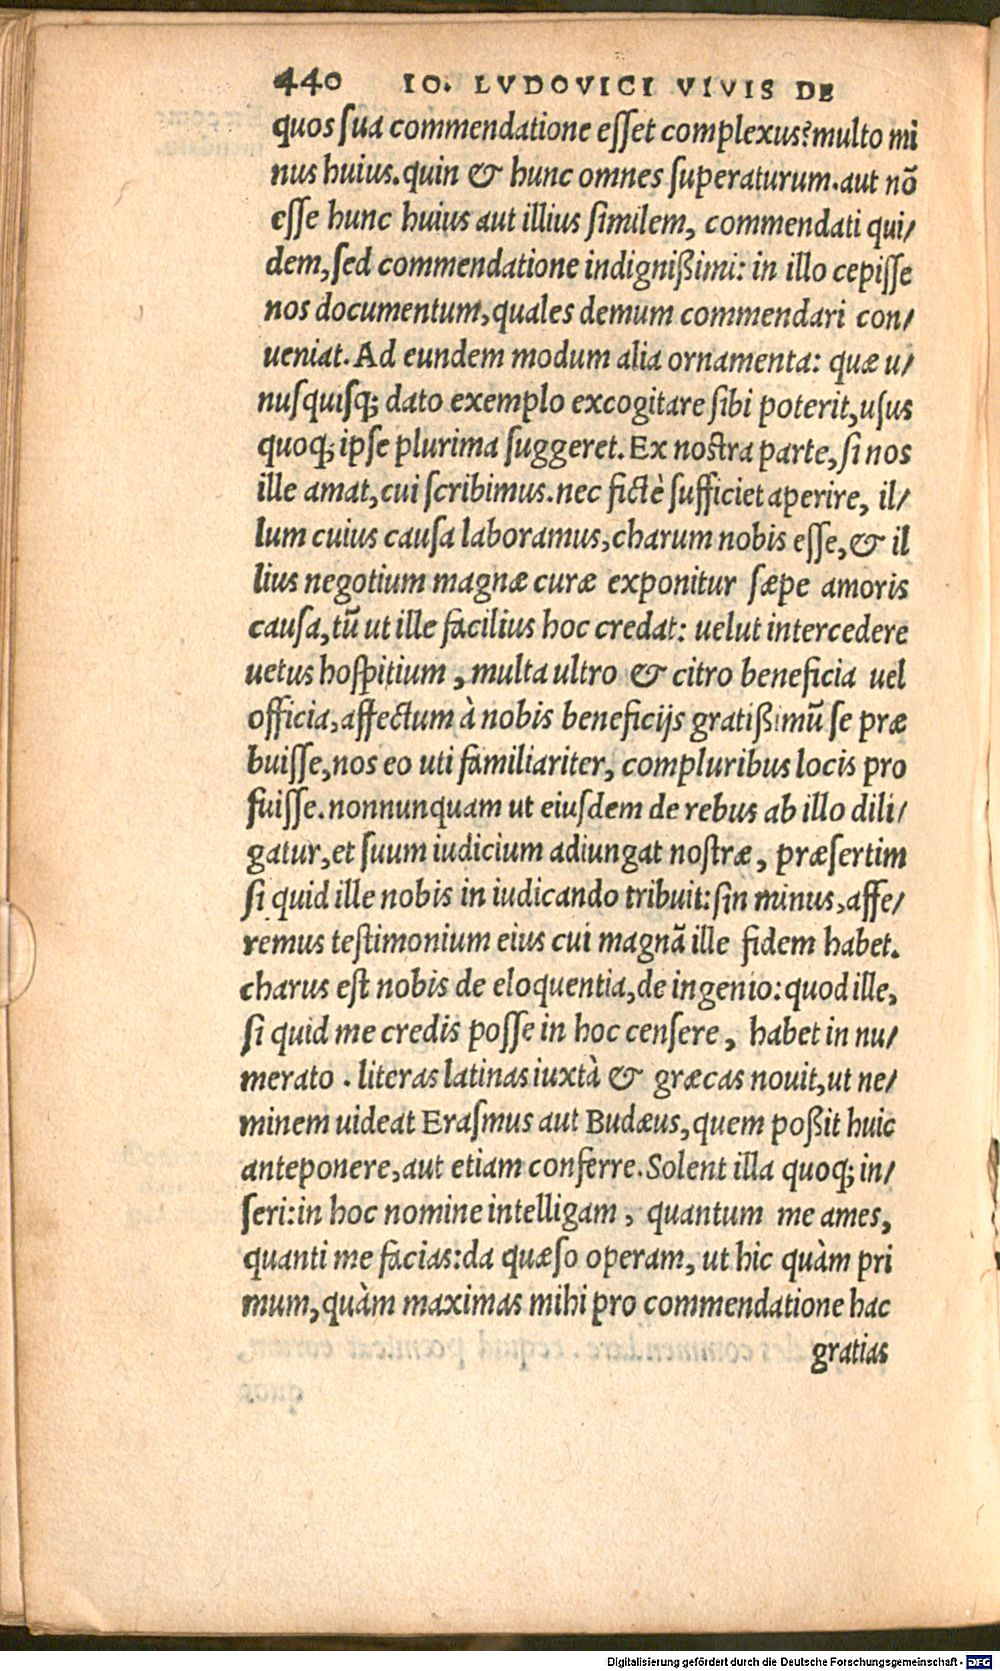 440 IO. LVDOVICI VIVIS DE
quos sua commendatione esset complexus? multo mi
nus huius. quin & hunc omnes superaturum. aut nõ
esse hunc huius aut illius similem, commendati qui/
dem, sed commendatione indignißimi: in illo cepisse
nos documentum, quales demum commendari con/
ueniat. Ad eundem modum alia ornamenta: quæ u/
nusquisq; dato exemplo excogitare sibi poterit, usus
quoq; ipse plurima suggeret. Ex nostra parte, si nos
ille amat, cui scribimus. nec fictè sufficiet aperire, il/
lum cuius causa laboramus, charum nobis esse, & il
lius negotium magnæ curæ exponitur sæpe amoris
causa, tũ ut ille facilius hoc credat: uelut intercedere
uetus hospitium, multa ultro & citro beneficia uel
officia, affectum à nobis beneficijs gratißimũ se præ
buisse, nos eo uti familiariter, compluribus locis pro
fuisse. nonnunquam ut eiusdem de rebus ab illo dili/
gatur, et suum iudicium adiungat nostræ, præsertim
si quid ille nobis in iudicando tribuit: sin minus, affe/
remus testimonium eius cui magnã ille fidem habet.
charus est nobis de eloquentia, de ingenio: quod ille,
si quid me credis posse in hoc censere, habet in nu/
merato. literas latinas iuxtà & græcas nouit, ut ne/
minem uideat Erasmus aut Budæus, quem poßit huic
anteponere, aut etiam conferre. Solent illa quoq; in/
seri: in hoc nomine intelligam, quantum me ames,
quanti me facias: da quæso operam, ut hic quàm pri
mum, quàm maximas mihi pro commendatione hac
gratias
Digitalisierung gefördert durch die Deutsche Forschungsgemeinschaft - DFG